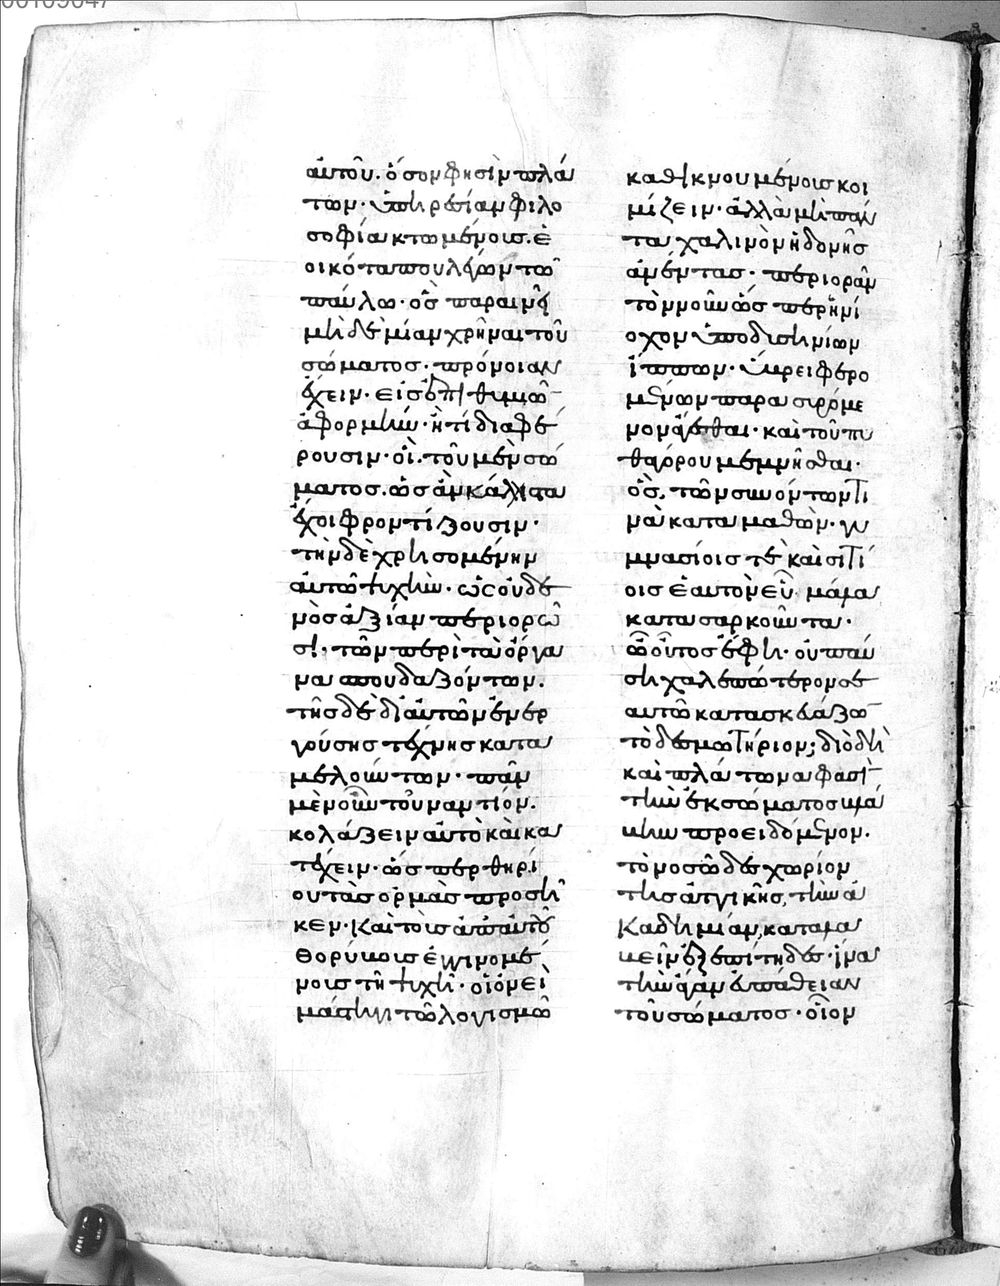 00109047
αὐτοῦ. ὅσον φησὶν πλά
των· ὑπηρεσίαν φιλο
σοφία κτωμένοις. ἐ
οικότα που λέγων τῶ
παύλω· ὃς παραινεῖ
μὴ δὲ μίαν χρῆναι τοῦ
σώματος· πρόνοιαν
ἔχειν· εἰς ἐπιθυμιῶν
ἀφορμήν· ἢ τί διαφέ
ρουσιν· οἱ τοῦ μὲν σώ
ματος. ὡς ἂν κάλλιστα
ἔχοι φροντίζουσιν·
τὴν δὲ χρησομένην
αὐτῶ ψυχὴν· ὡς οὐδε
νὸς ἀξίαν περιορῶ
σι· τῶν περὶ τὰ ὄργα
να σπουδαζόντων.
τῆς δὲ δι' αὐτῶν ἐνερ
γούσης τέχνης κατα
μελούντων· πᾶν
μὲν οὖν τοὐναντίον.
κολάζειν αὐτὸ καὶ κα
τέχειν· ὥσπερ θηρί
ου τὰς ὁρμὰς προσῆ
κεν· Καὶ τοῖς ἀπ' αὐτοῦ
θορύβοις ἐγγινομέ
νοις τῆ ψυχῆ· οἱονεὶ
μάστιγι τῶ λογισμῶ
καθικνουμένοις κοι
μίζειν· ἀλλὰ μὴ πάν
τα χαλινὸν ἡδονῆς
ἀνέντας· περιορᾶν
τὸν νοῦν ὥσπερ ἡνί
οχον ὑπὸ δυσηνίων
ἵππων· ὕβρει φερο
μένων παρασυρόμε
νον ἄγεσθαι· καὶ τοῦ πυ
θαγόρου μεμνῆσθαι·
ὃς, τῶν συνόντων τι
νὰ καταμαθὼν· γυ
μνασίοις τὲ καὶ σιτί
οις ἑαυτὸν εὖ μάλα
κατασαρκοῦντα·
ὦ οὗτος ἔφη· οὐ παύ
ση χαλεπώτερον σε
αυτῶ κατασκευάζων
τὸ δεσμωτήριον; διὸ δὴ
καὶ πλάτωνα φασὶ
τὴν ἐκ σώματος βλά
βην προειδόμενον.
τὸ νοσῶδες χωρίον
τῆς ἀττικῆς, τὴν ἀ
Καδημίαν, καταλα
βεῖν ἐξεπίτηδες· ἵνα
τὴν ἄγαν εὐπάθειαν
τοῦ σώματος· οἷον